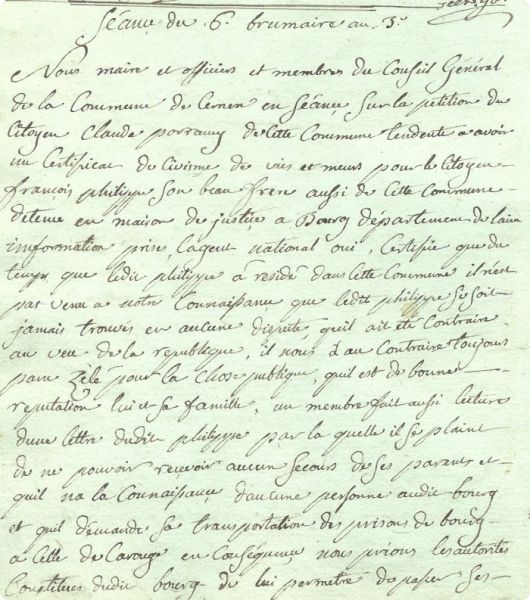 Séance du 6. brumaire an 3.e
Nous maire et officiers et membres du Conseil Général
de la Commune de Cernex en Séance, Sur la petition du
Citoyen Claude porraux de Cette Commune tendente a avoir
un Certificat de Civisme de vies et meurs pour le Citoyen
françois philippe Son beau frere aussi de Cette Commune
detenue en maison de justice a Bourg département de l'ain
information prises, l'agent national oui, Certifie que du
temps que ledit philippe à residé dans Cette Commune il n'est
pas venu a notre Connaissance que ledit philippe se soit
jamais trouvés en aucune dispute, qu'il ait été Contraire
au veu de la republique, il nous à au Contraire toujours
paru Zelé pour la Chose publique, quil est de bonne
reputation lui et sa famille, un membre fait aussi lecture
dune lettre dudit philippe par la quelle il se plaint
de ne pouvoir recevoir aucun Secours de Ses parants et
quil na la Connaissance d'aucune personne audit bourg
et quil demande sa transportation des prisons de bourg
a Celle de Carouge en Conséquence nous prions les autorités
Constitues dudit bourg de lui permetre de passer Ses